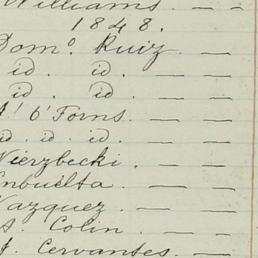 Williams. — —
1848.
Domº Ruiz — —
id. id. — —
id. id. — —
O'Forns. — —
id. id. id. — —
Wierzbecki. — —
nbuelta. — —
Vazquez. — —
s. Colin. — —
f. Cervantes. — —